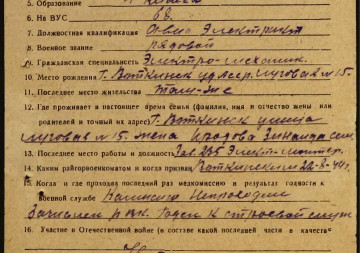 5. Образование 7 классов
6. На ВУС 68.
7. Должностная квалификация Авио Электрикт
8. Военное звание рядовой
9. Гражданская специальность Электро-механик.
10. Место рождения г. Воткинск удмсср. луговая №15.
11. Последнее место жительства Там-же
12. Где проживает в настоящее время семья (фамилия, имя и отчество жены или
родителей и точный их адрес) г. Воткинск улица
луговая №15. жена Зинаида
13. Последнее место работы и должность Зав. 235 Элект-монтер.
14. Каким райгорвоенкоматом и когда призван Воткинским 22-8-44г.
15. Когда и где проходил последний раз медкомиссию и результат годности к
военной службе Комиссию Непроходил
Зачислен Годен к строевой служ
16. Участие в Отечественной войне (в составе какой последней части в качеств